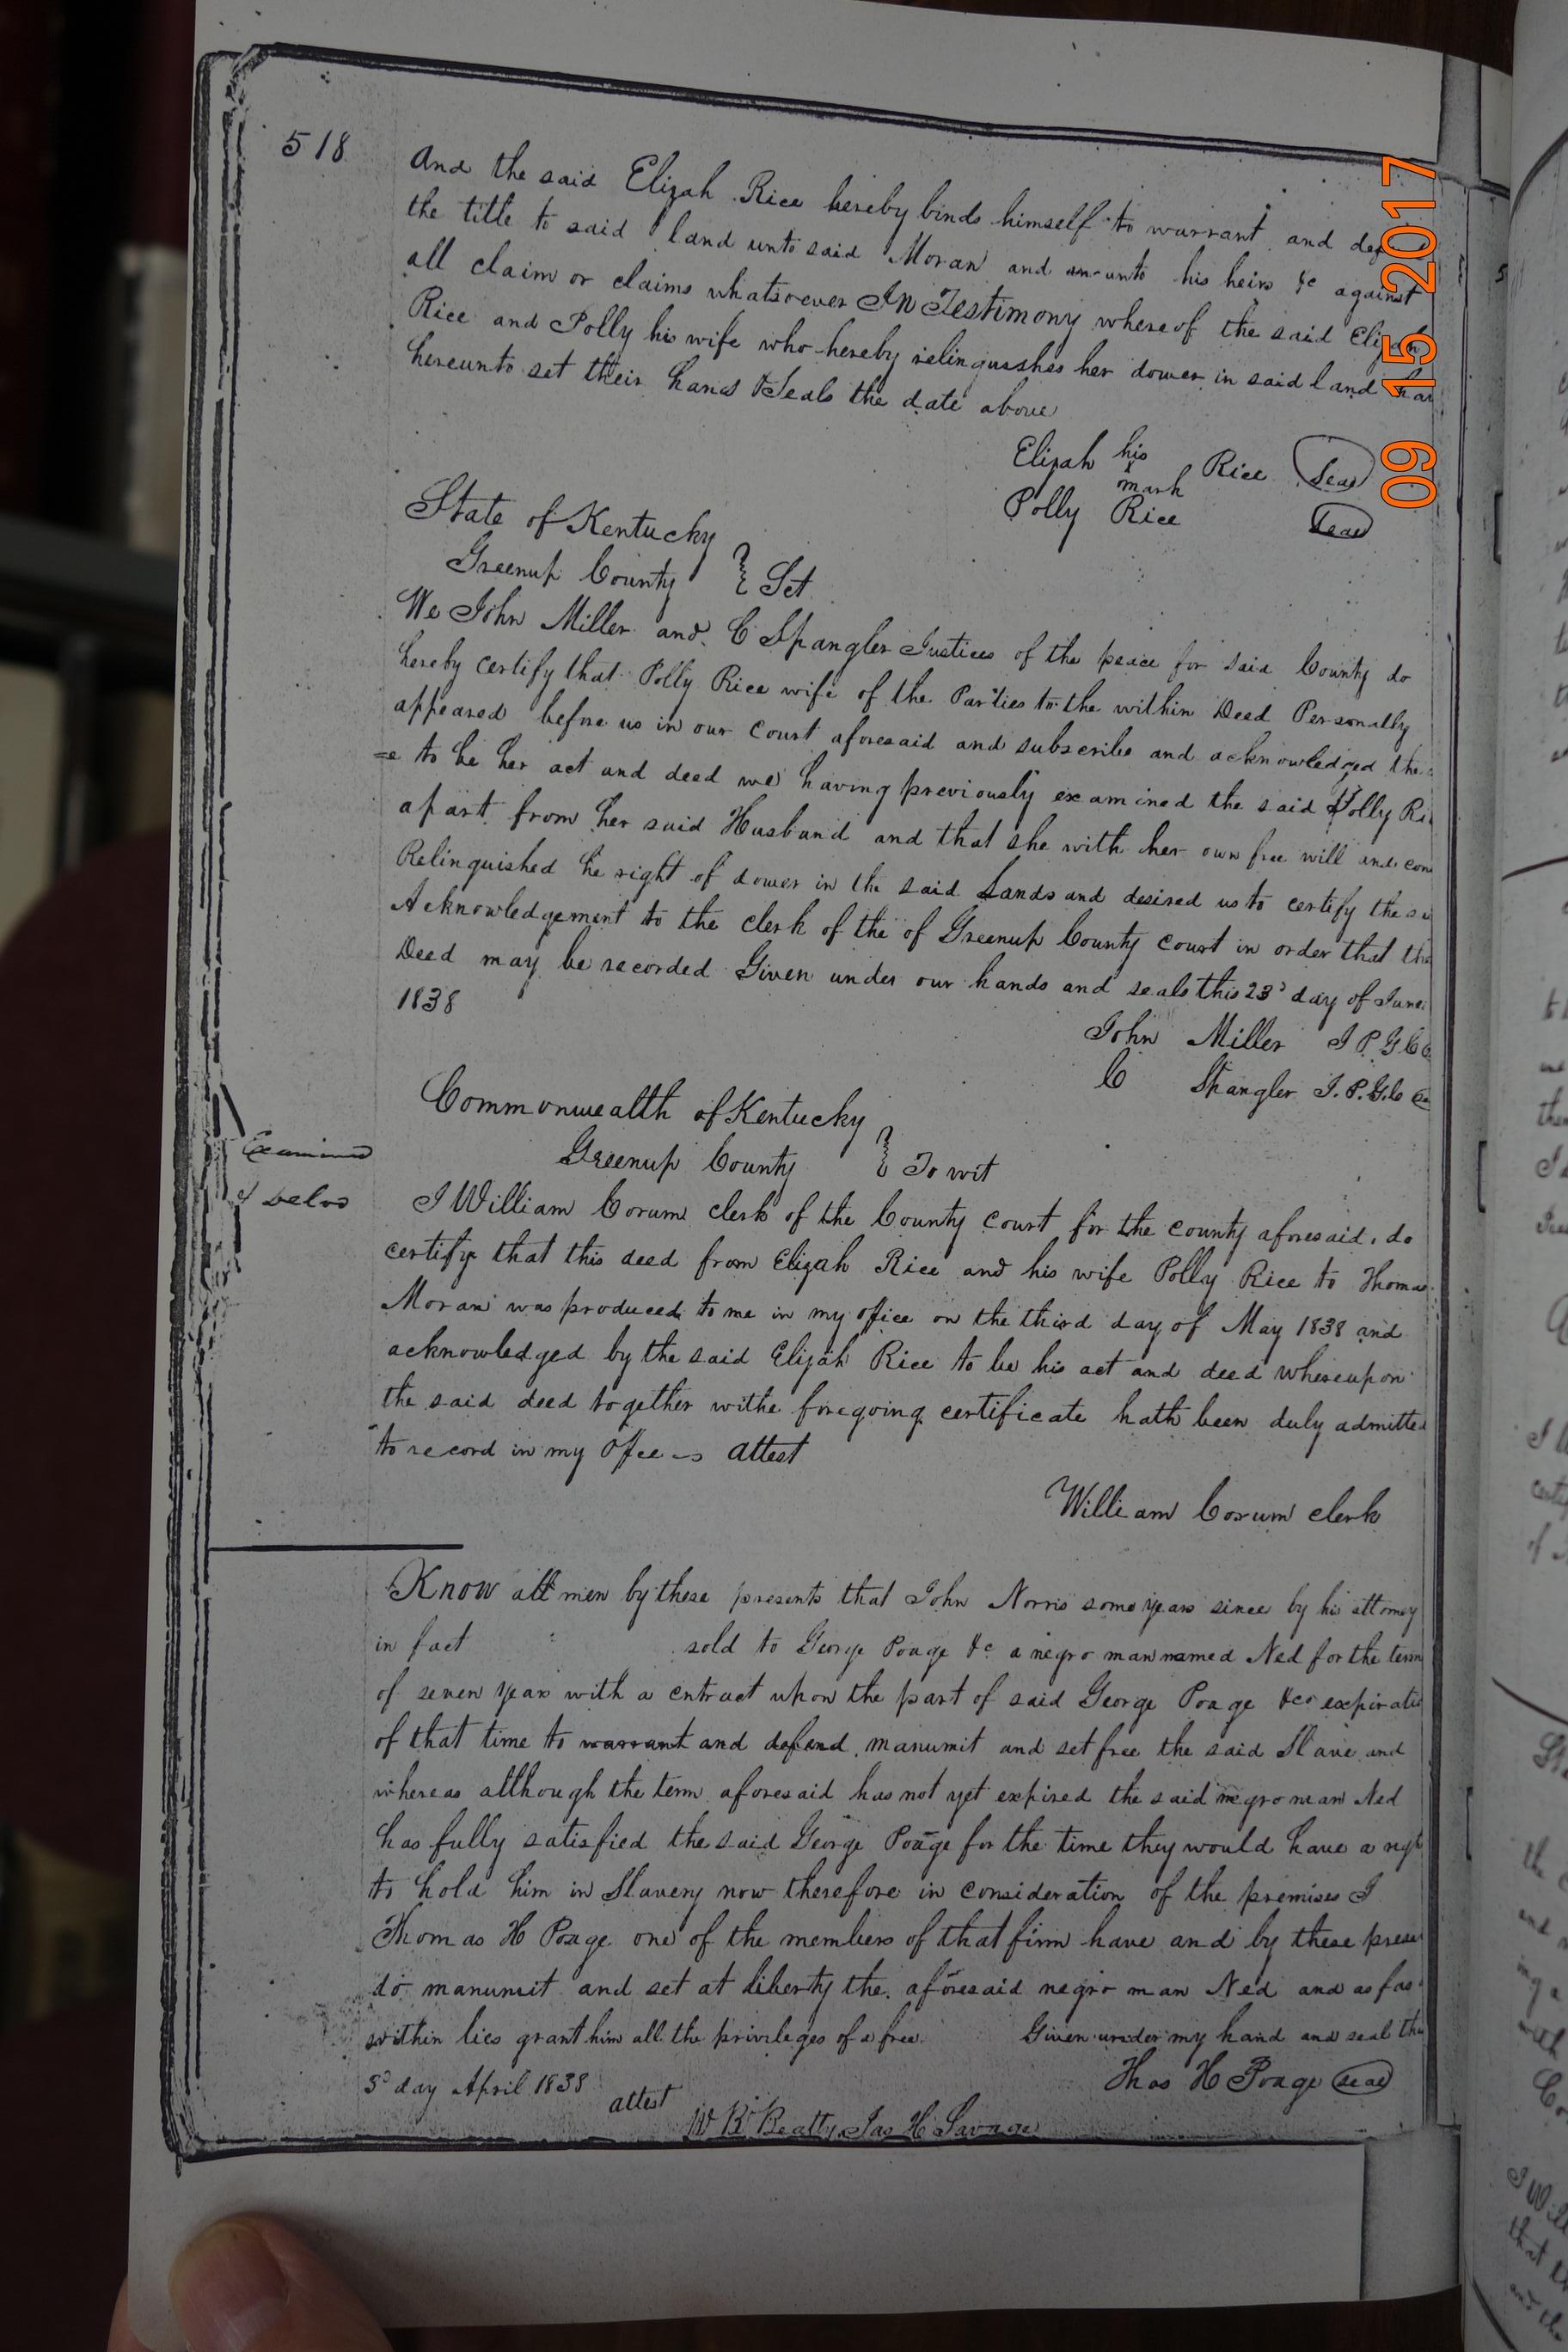 518
And the said Elijah Rice hereby binds himself to warrant and def
the title to said land unto said Moran and unto his heirs &c against
all claim or claims whatsoever In Testimony whereof the said Elijah
Rice and Polly his wife who hereby relinquishes her dower in said land ha
hereunto set their hand & Seals the date above
Elijah his x mark Rice Seal
Polly Rice Seal
State of Kentucky
Greenup County } Sct
We John Miller and C Spangler Justices of the peace for said County do
hereby certify that Polly Rice wife of the Parties to the within Deed Personally
appeared before us in our Court aforesaid and subscribe and acknowledged the
=e to be her act and deed we having previously examined the said Polly Ri
apart from her said Husband and that she with her own free will and con
Relinquished he right of dower in the said Lands and desired us to certify the
Acknowledgement to the clerk of the of Greenup County court in order that the
Deed may be recorded Given under our hands and seals this 23d day of June
1838
John Miller J P G C
C Spangler J. P. G. C
Commonwealth of Kentucky
Greenup County } To wit
Examined
I William Corum clerk of the County court for the county aforesaid, do
certify that this deed from Elijah Rice and his wife Polly Rice to Thomas
Moran was produced to me in my office on the third day of May 1838 and
acknowledged by the said Elijah Rice to be his act and deed whereupon
the said deed together withe foregoing certificate hath been duly admitted
to record in my Offce attest
William Corum clerk
Know all men by these presents that John Norris some years since by his attorney
in fact sold to George Poage &c a negro man named Ned for the term
of seven year with a cntract upon the part of said George Poage &co expiratio
of that time to warrant and defend manumit and set free the said Slave and
whereas although the term aforesaid has not yet expired the said negro man Ned
has fully satisfied the said George Poage for the time they would have a righ
to hold him in Slavery now therefore in consideration of the premises I
Thomas H Poage one of the members of that firm have and by these prese
do manumit and set at liberty the aforesaid negro man Ned and as far
within lies grant him all the privileges of a free Given under my hand and seal this
3d day April 1838
Thos H Poage seal
attest
W R Beatty Jas H Savage
09 15 2017